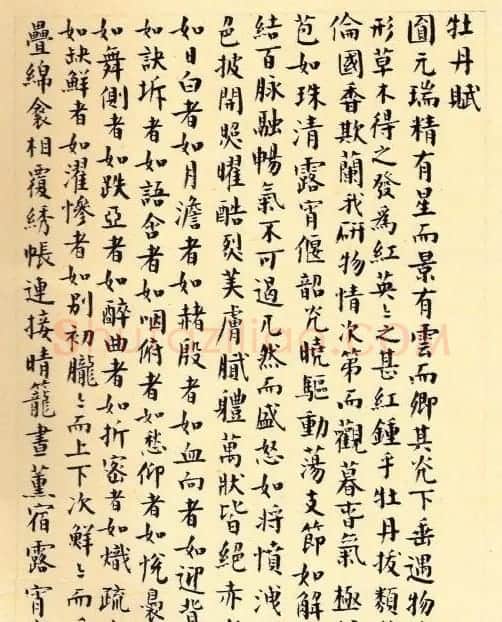 牡丹賦
圓元瑞精有星而景有雲而卿其光下垂遇物
形草木得之發為紅英々之甚紅鍾乎牡丹拔類
倫國香欺蘭我研物情次第而觀暮春氣極
苞如珠清露宵偃韶光曉驅動蕩支節如解
結百脉融暢氣不可遏兀然而盛怒如將憤洩
色披開照曜酷烈美膚膩體萬狀皆絕赤
如日白者如月澹者如赭殷者如血向者如迎背
如訣坼者如語含者如咽俯者如愁仰者如悅裊
如舞側者如跌亞者如醉曲者如折密者如熾疏
如缺鮮者如濯慘者如別初朧々而上下次鮮々而
疊綿衾相覆綉帳連接晴籠晝薰宿露宵
Shufaziliao.COM